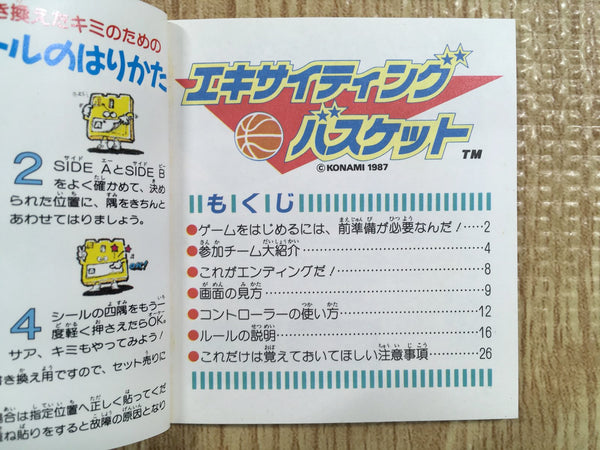 き換えたキミのための
ールのはりかた
2 SIDE AとSIDE B
をよく確かめて、決め
られた位置に、隅をきちんと
あわせてはりましょう。
4 シールの四隅をもう一
度軽く押さえたらOK。
サア、キミもやってみよう!
き換え用ですので、セット売りに
場合は指定位置へ正しく貼ってくだ
ね貼りをすると故障の原因となり
エキサイティング
バスケット
TM
©KONAMI 1987
もくじ
●ゲームをはじめるには、前準備が必要なんだ!……2
●参加チーム大紹介……4
●これがエンディングだ!……8
●画面の見方……9
●コントローラーの使い方……12
●ルールの説明……16
●これだけは覚えておいてほしい注意事項……26